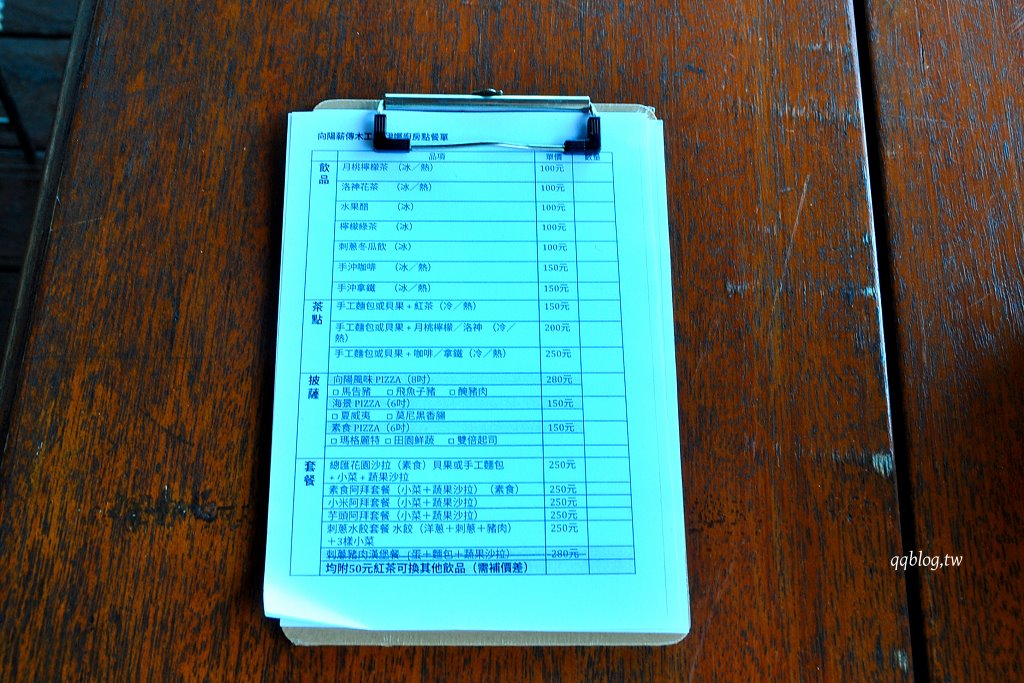 向陽薪傳木工 廚房點餐單
品項 單價 數量
飲品
月桃檸檬茶 （冰／熱） 100元
洛神花茶 （冰／熱） 100元
水果醋 （冰） 100元
檸檬綠茶 （冰） 100元
刺蔥冬瓜飲（冰） 100元
手沖咖啡 （冰／熱） 150元
手沖拿鐵 （冰／熱） 150元
茶點
手工麵包或貝果＋紅茶（冷／熱） 150元
手工麵包或貝果＋月桃檸檬／洛神 （冷／ 200元
熱）
手工麵包或貝果＋咖啡／拿鐵（冷／熱） 250元
披薩
向陽風味 PIZZA（8吋） 280元
□ 馬告豬 □ 飛魚子豬 □ 醃豬肉
海景 PIZZA（6吋） 150元
□ 夏威夷 □ 莫尼黑香腸
素食 PIZZA（6吋） 150元
□ 瑪格麗特 □ 田園鮮蔬 □ 雙倍起司
套餐
總匯花園沙拉（素食）貝果或手工麵包 250元
＋小菜＋蔬果沙拉
素食阿拜套餐（小菜＋蔬果沙拉）（素食） 250元
小米阿拜套餐（小菜＋蔬果沙拉） 250元
芋頭阿拜套餐（小菜＋蔬果沙拉） 250元
刺蔥水餃套餐 水餃（洋蔥＋刺蔥＋豬肉） 250元
＋3樣小菜
刺蔥豬肉漢堡餐 （蛋＋麵包＋蔬果沙拉） 280元
均附50元紅茶可換其他飲品（需補價差）
qqblog,tw